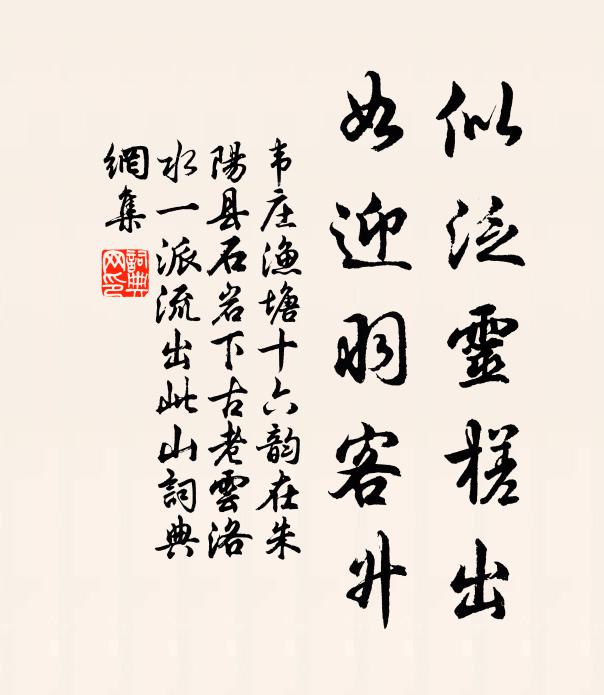 似泛靈槎出
如迎羽客升
韦庄漁塘十六韵在朱
陽县石岩下古老雲洛
水一派流出此山詞典
網集
詞典
网印